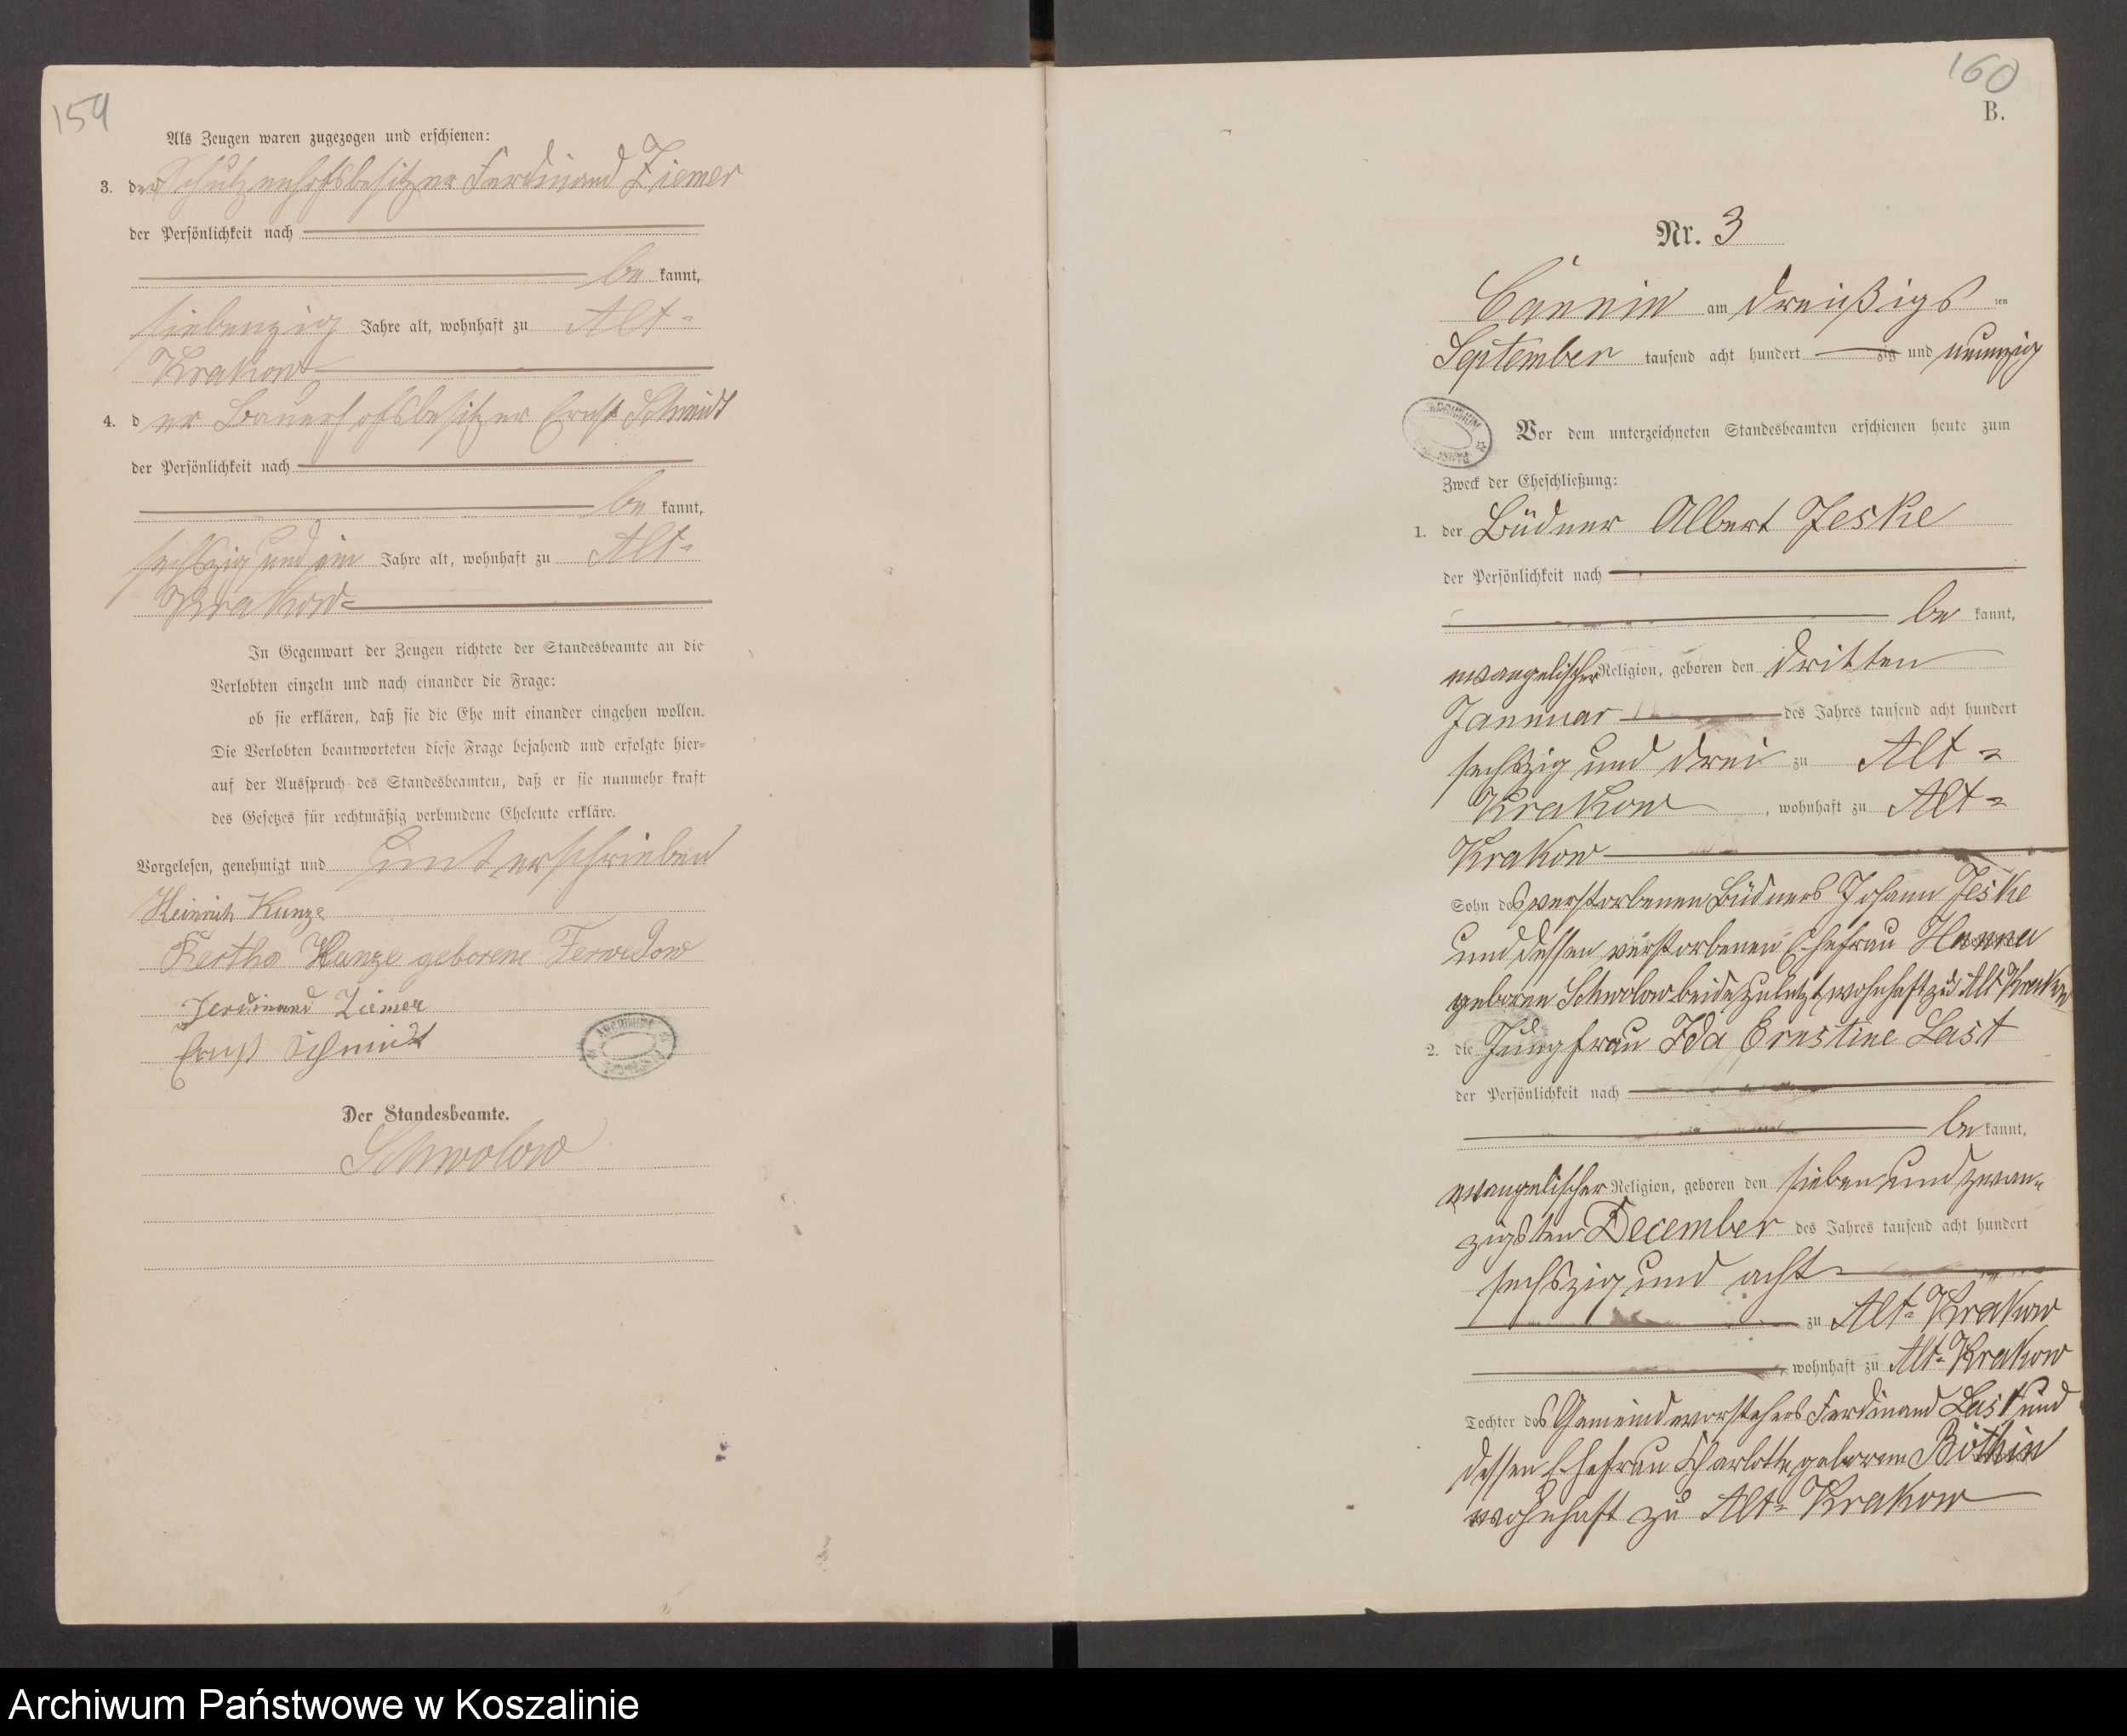 159
Als Zeugen waren zugezogen und erschienen:
3. der Schulzenhofsbesitzer Ferdinand Ziemer
der Persönlichkeit nach
be kannt,
siebenzig Jahre alt, wohnhaft zu Alt=
Krakow
4. d er Bauerhofsbesitzer Ernst Schmidt
der Persönlichkeit nach
be kannt,
sechszig und ein Jahre alt, wohnhaft zu Alt=
Krakow
In Gegenwart der Zeugen richtete der Standesbeamte an die
Verlobten einzeln und nach einander die Frage:
ob sie erklären, daß sie die Ehe mit einander eingehen wollen.
Die Verlobten beantworteten diese Frage bejahend und erfolgte hier=
auf der Ausspruch des Standesbeamten, daß er sie nunmehr kraft
des Gesetzes für rechtmäßig verbundene Eheleute erkläre.
Vorgelesen, genehmigt und unterschrieben
Heinrich Kunze
Kunze geborene
Ferdinand Ziemer
Ernst Schmidt
ARCHIWUM
Der Standesbeamte.
Schwolow
160
B.
Nr. 3
Cannin am dreißigs ten
September tausend acht hundert zig und neunzig
ARCHIWUM
Vor dem unterzeichneten Standesbeamten erschienen heute zum
Zweck der Eheschließung:
1. der Büdner Albert Jeske
der Persönlichkeit nach
be kannt,
evangelischer Religion, geboren den dritten
Januar des Jahres tausend acht hundert
sechszig und drei zu Alt=
Krakow, wohnhaft zu Alt=
Krakow
Sohn des verstorbenen Büdners Johann Jeske
und dessen verstorbenen Ehefrau Hanna
geboren Schwolow beide zuletzt wohnhaft zu Alt Krakow
2. die Jungfrau Ida Ernstine Last
der Persönlichkeit nach
be kannt,
evangelischer Religion, geboren den sieben und zwan=
zigsten December des Jahres tausend acht hundert
sechszig und acht
zu Alt=Krakow
, wohnhaft zu Alt=Krakow
Tochter des Gemeindevorstehers Ferdinand Last und
dessen Ehefrau Charlotte geboren Böthin
wohnhaft zu Alt=Krakow
Archiwum Państwowe w Koszalinie